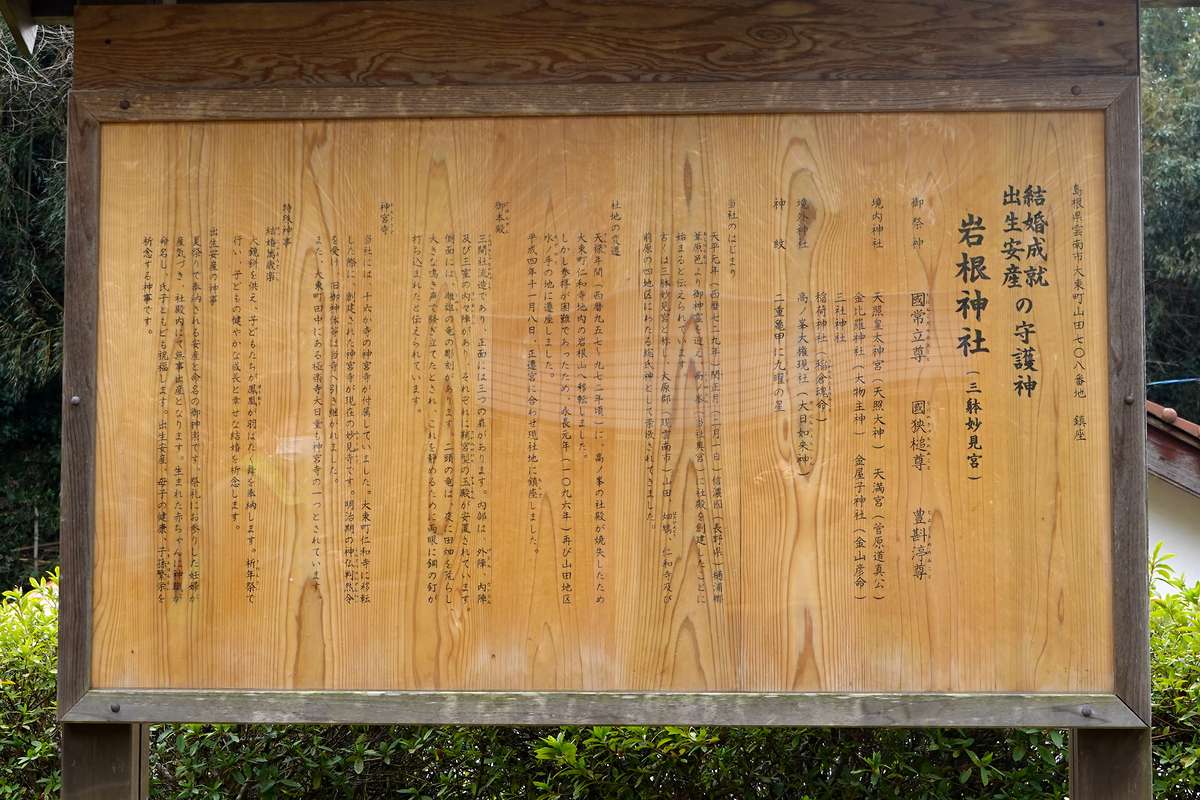 島根県雲南市大東町山田七〇八番地 鎮座
結婚成就
出生安産
の守護神
岩根神社(三躰妙見宮)
御祭神 國常立尊 國狭槌尊 豊斟渟尊
境内神社 天照皇太神宮(天照大神) 天満宮(菅原道真公)
金比羅神社(大物主神) 金屋子神社(金山彦命)
三社神社
稲荷神社(稲倉魂命)
境外神社 高ノ峯大権現社(大日如来神)
神紋 二重亀甲に九曜の星
当社のはじまり
天平元年(西暦七二九年)閏正月(二月八日)信濃國(長野県)樋浦郷
葦原邑より御神霊を迎え、高ノ峯(当社奥宮)に社殿を創建したことに
始まると伝えられています。
古くは三躰妙見宮と称し、大原郡(現雲南市)山田、畑鵯、仁和寺及び
前原の四地区にわたる総氏神として崇敬されてきました。
社地の変遷
天禄年間(西暦九五七~九七二年頃)に、高ノ峯の社殿が焼失したため
大東町仁和寺地内の岩根山へ移転しました。
しかし参拝が困難であったため、永長元年(一〇九六年)再び山田地区
水ノ手の地に遷座しました。
平成四年十一月八日、正遷宮に合わせ現社地に鎮座しました。
御本殿
三間社流造であり、正面には三つの扉があります。内部は、外陣、内陣
及び三室の内々陣があり、それぞれに親宮型の玉殿が安置されています。
側面には、雌雄の竜の彫刻があります。二頭の竜は、夜に田畑を荒らし、
大きな鳴き声で騒ぎ立てたとされ、これを静めるために両眼に銅の釘が
打ち込まれたと伝えられています。
神宮寺
当社には、十六か寺の神宮寺が付属していました。大東町仁和寺に移転
した際に、創建された神宮寺が現在の妙見寺です。明治期の神仏判然令
を受け、旧御神体等は当寺に引き継がれました。
また、大東町田中にある極楽寺大日重も神宮寺の一つとされています。
特殊神事
結婚萬歳楽
大鏡餅を供え、子どもたちが鳳凰が羽ばたく舞を奉納します。祈年祭で
行い、子どもの健やかな成長と幸せな結婚を祈念します。
出生安産の神事
夏祭りで奉納される安産と命名の御神事です。祭礼にお参りした妊婦が
産気づき、社殿内にて無事出産となります。生まれた赤ちゃんに神職が
命名し、氏子ともども祝福します。出生安産、母子の健康、子孫繁栄を
祈念する神事です。